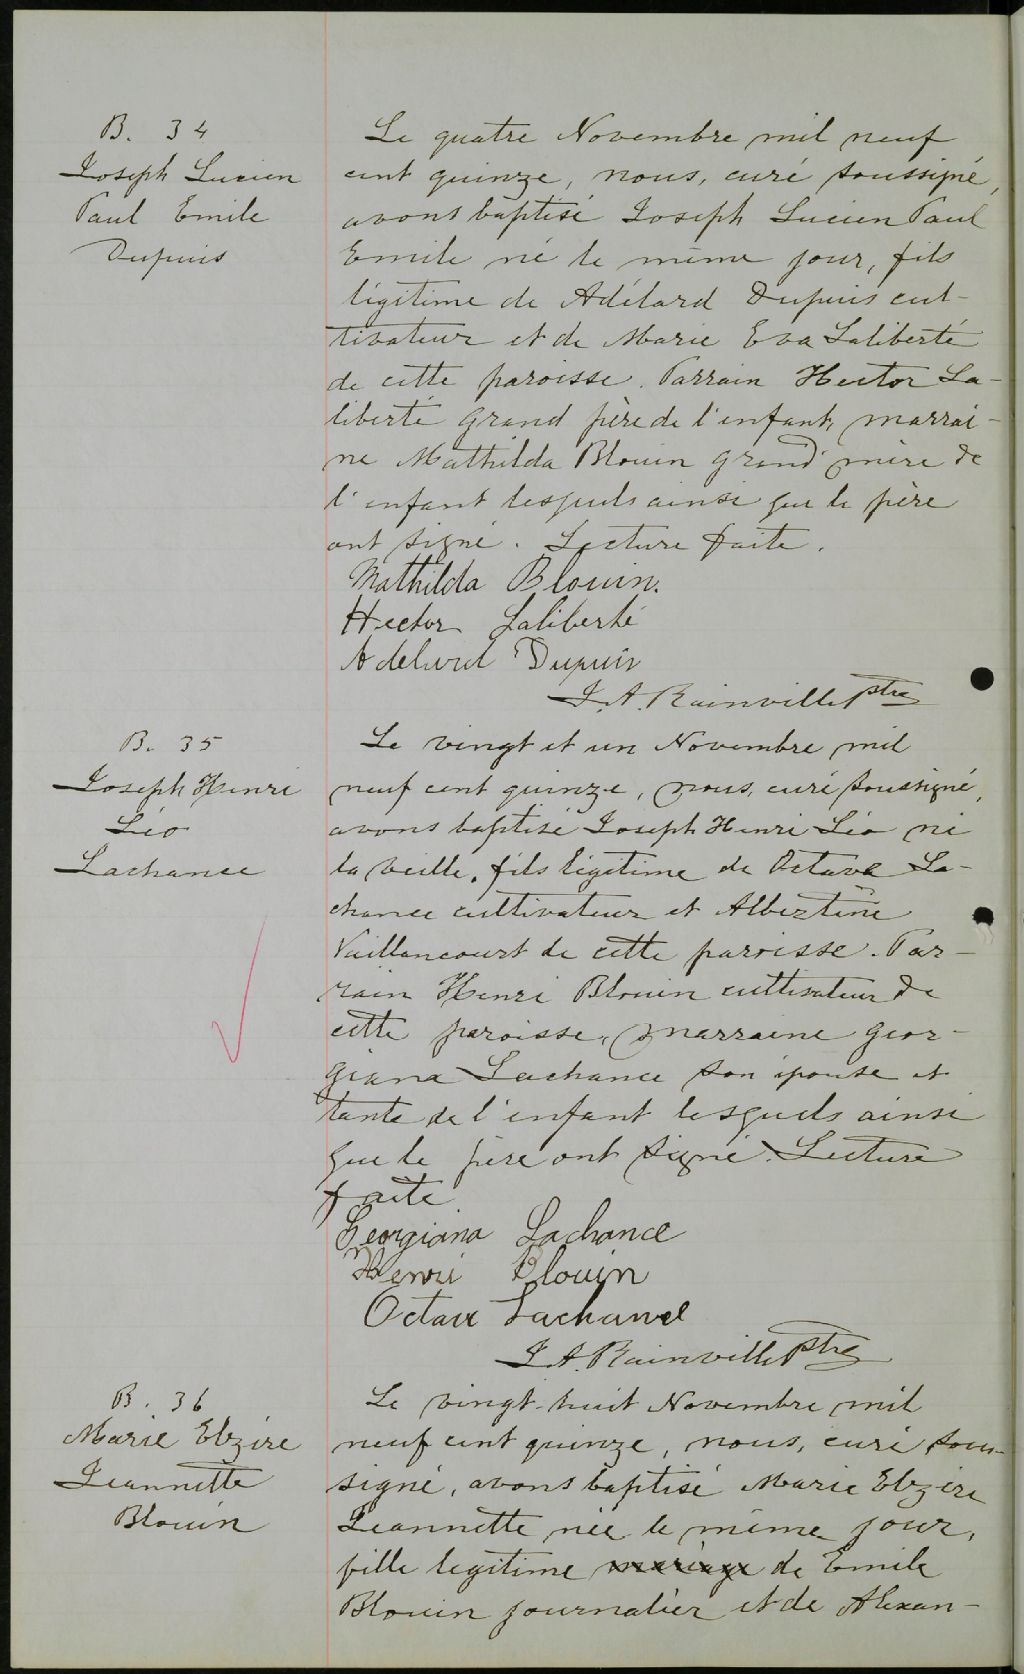 B. 34
Joseph Lucien
Paul Emile
Dupuis
Le quatre Novembre mil neuf
cent quinze, nous, curé soussigné,
avons baptisé Joseph Lucien Paul
Emile né le même jour, fils
légitime de Adélard Dupuis cul-
tivateur et de Marie Eva Laliberté
de cette paroisse. Parrain Hector La-
liberté grand père de l'enfant, marrai-
ne Mathilda Blouin grand'mère de
l'enfant lesquels ainsi que le père
ont signé. Lecture faite.
Mathilda Blouin.
Hector Laliberté
Adelard Dupuis
J. A. Rainville Ptre
B. 35
Joseph Henri
Léo
Lachance
Le vingt et un Novembre mil
neuf cent quinze, nous, curé soussigné,
avons baptisé Joseph Henri Léo né
la veille, fils légitime de Octave La-
chance cultivateur et Albertine
Vaillancourt de cette paroisse. Par-
rain Henri Blouin cultivateur de
cette paroisse, marraine Geor-
giana Lachance son épouse et
tante de l'enfant lesquels ainsi
que le père ont signé. Lecture
faite
Georgiana Lachance
Henri Blouin
Octave Lachance
J. A. Rainville Ptre
B. 36
Marie Elzire
Jeannette
Blouin
Le vingt-huit Novembre mil
neuf cent quinze, nous, curé sous-
signé, avons baptisé Marie Elzire
Jeannette née le même jour,
fille legitime mariage de Emile
Blouin journalier et de Alexan-